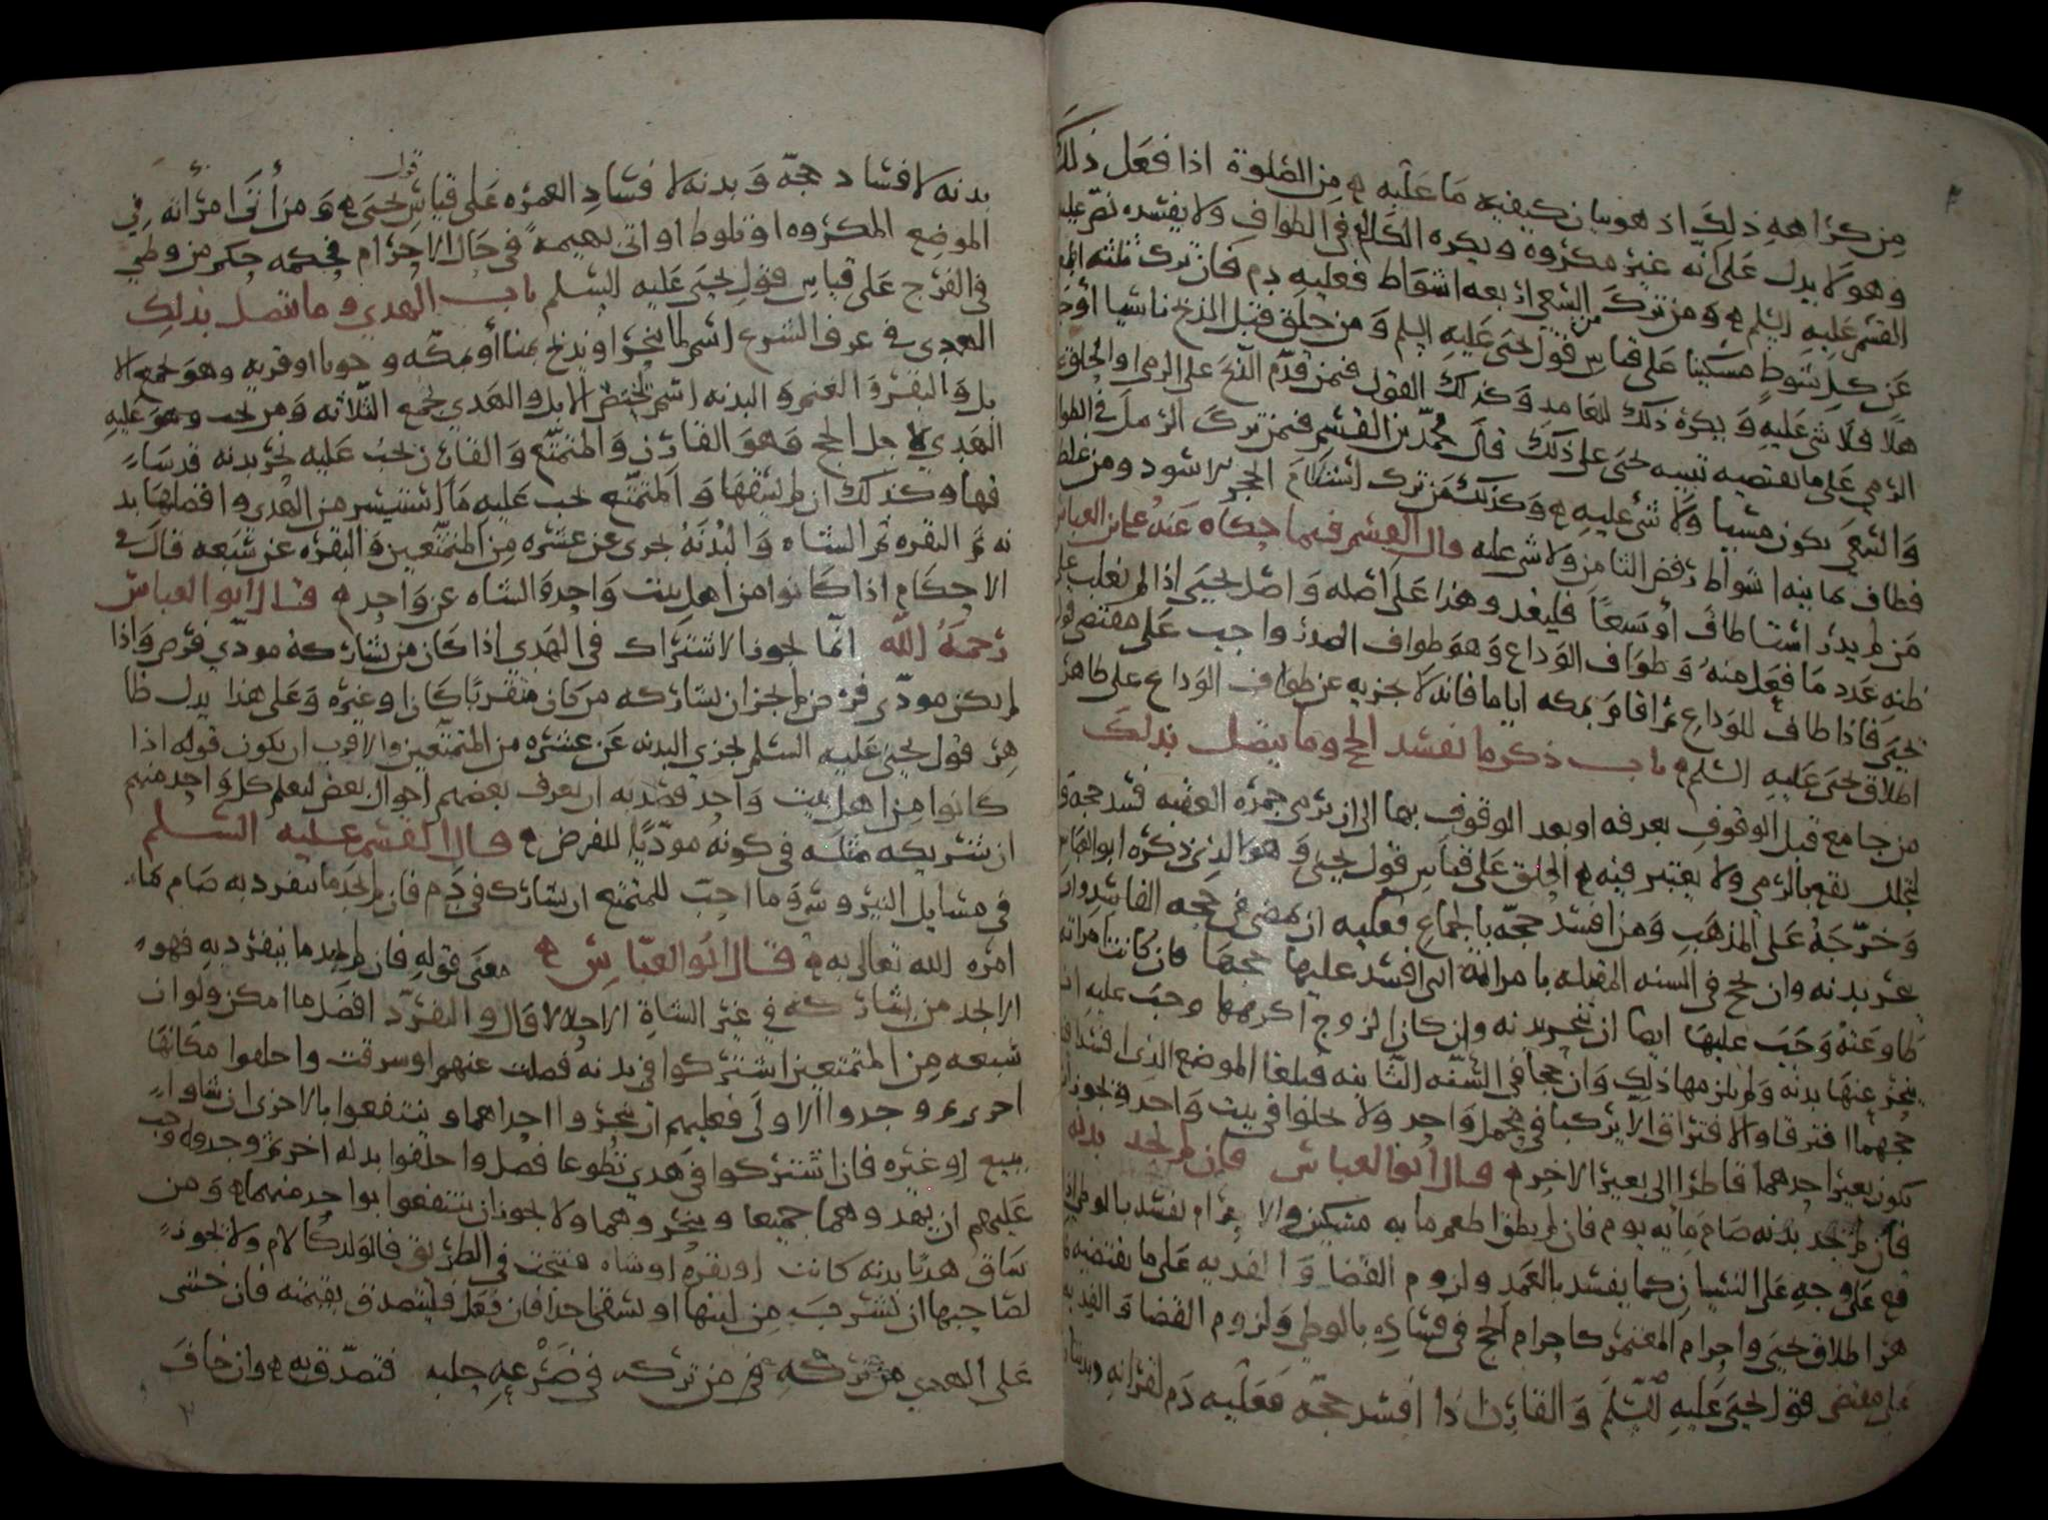 من كراهه ذلك اذ هو بيان كيفيه ما عليه من الصلوة اذا فعل ذلك
وهو لا يدل على انه غير مكروه ويكره الكلام في الطواف ولا يفسده نص عليه
القسم عليه السلم ومن ترك السعي اربعه اشواط فعليه دم فان ترك ثلثه اطعم
عن كل شوط مسكينا على قياس قول يحيى عليه السلم ومن حلق قبل الذبح ناسيا أو جا
هلا فلا شي عليه ويكره ذلك للعامد وكذلك القول فمن قدم الذبح على الرمي او الحلق على
الرمي على ما يقتضيه تنبيه يحيى على ذلك قال محمد بن القسم فمن ترك الرمل في الطواف
والسعي يكون مسيا ولا شي عليه وكذلك من ترك استلام الحجر الاسود ومن غلط
فطاف ثمانيه اشواط رفض الثامن ولا شي عليه قال القسم فيما حكاه عنه علي بن العباس
من لم يدر أستا طاف أو سبعا فليعد وهذا على اصله واصل يحيى اذا لم يغلب على
ظنه عدد ما فعل منه وطواف الوداع وهو طواف الصدر واجب على مقتضى قول
يحيى فاذا طاف للوداع ثم اقام بمكه اياما فانه لا يجزيه عن طواف الوداع على ظاهر
اطلاق يحيى عليه السلم باب ذكر ما يفسد الحج وما يتصل بذلك
من جامع قبل الوقوف بعرفه او بعد الوقوف بها الى ان يرمي جمره العقبه فسد حجه و
التحلل يقع بالرمي ولا يعتبر فيه الحلق على قياس قول يحيى وهو الذي ذكره ابو العباس
وخرجه على المذهب ومن افسد حجه بالجماع فعليه ان يمضي في حجه الفاسد وان
ينحر بدنه وان يحج في السنه المقبله بامراته التي افسد عليها حجها فان كانت امراته
طاوعته وجب عليها ايضا ان تنحر بدنه وان كان الزوج اكرهها وجب عليه ان
ينحر عنها بدنه ولم يلزمها ذلك وان حجا في السنه الثانيه فبلغا الموضع الذي افسدا
حجهما افترقا والافتراق الا يركبا في محمل واحد ولا يخلوا في بيت واحد ويجوز ان
يكون بعير احدهما قاطرا الى بعير الاخر قال ابو العباس فان لم يجد بدنه
فان لم تجد بدنه صام مايه يوم فان لم يطق اطعم مايه مسكين والاحرام يفسد بالوطي اذا
وقع على وجه على النسيان كما يفسد بالعمد ولزوم القضا والفديه على ما يقتضيه ظا
هر اطلاق يحيى واحرام المعتمر كاحرام الحج في فساده بالوطي ولزوم القضا والفديه
على مقتضى قول يحيى عليه السلم والقارن اذا افسد حجه فعليه دم لقرانه وبدنتان
بدنه لافساد حجه وبدنه لافساد العمره على قياس قول يحيى ومن أتى امراته في
الموضع المكروه او تلوط او اتى بهيمة في حال الاحرام فحكمه حكم من وطي
في الفرج على قياس قول يحيى عليه السلم باب الهدي وما يتصل بذلك
الهدي في عرف الشرع اسم لما ينحر او يذبح بمنا أو بمكه وجوبا او قربه وهو يجمع الا
بل والبقر والغنم والبدنه اسم يختص الابل والهدي يجمع الثلاثه ومن يجب عليه
الهدي لاجل الحج وهو القارن والمتمتع والقارن يجب عليه نحر بدنه قد ساقـ
ـها وكذلك ان لم يسقها والمتمتع يجب عليه ما استيسر من الهدي وافضلها بد
نه ثم البقره ثم الشاه والبدنه تجزي عن عشره من المتمتعين والبقره عن سبعه قال في
الاحكام اذا كانوا من اهل بيت واحد والشاه عن واحد قال ابو العباس
رحمة الله انما يجوز الاشتراك في الهدي اذا كان من يشاركه مودي فرض واذا
لم يكن مودي فرض لم يجز ان يشاركه من كان متقربا كان او غيره وعلى هذا يدل ظا
هر قول يحيى عليه السلم تجزي البدنه عن عشره من المتمتعين والاقرب ان يكون قوله اذا
كانوا من اهل بيت واحد قصد به ان يعرف بعضهم احوال بعض ليعلم كل واحد منهم
ان شريكه مثله في كونه موديا للفرض قال القسم عليه السلم
في مسايل النيروسي وما احب للمتمتع ان يشارك في دم فان لم يجد ما ينفرد به صام كما
امره الله تعالى به قال ابو العباس معنى قوله فان لم يجد ما ينفرد به فهو
الا يجد من يشاركه في غير الشاة قال والتفرد افضل ما امكن ولو ان
سبعه من المتمتعين اشتركوا في بدنه فضلت عنهم او سرقت واخلفوا مكانها
اخرى ثم وجدوا الاولى فعليهم ان ينحروا احداهما وينتفعوا بالاخرى ان شاوا
ببيع او غيره فان اشتركوا في هدي تطوعا فضل واخلفوا بدله اخر ثم وجدوه وجب
عليهم ان يهدوهما جميعا وينحروهما ولا يجوز ان ينتفعوا بواحد منهما ومن
ساق هديا بدنه كانت او بقره او شاه فنتجت في الطريق فالولد كالام ولا يجوز
لصاحبها ان يشرب من لبنها او يسقي احدا فان فعل فليتصدق بقيمته فان خشي
على الهدي من تركه في ضرعه حلبه فتصدق به وان خاف